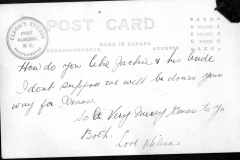 CLEGG'S STUDIO
PORT
ALBERNI,
B.C.
POST CARD
MADE IN CANADA
CORRESPONDENCE
ADDRESS
How do you like Jackie & his bride
I dont suppose we will be down your
way for Xmas.
So a Very Merry Xmas to Yo
Both.
Love